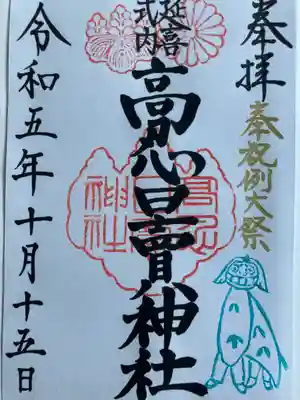 奉拝
奉祝例大祭
延喜
式内
高忍日賣神社
神社
令和五年十月十五日